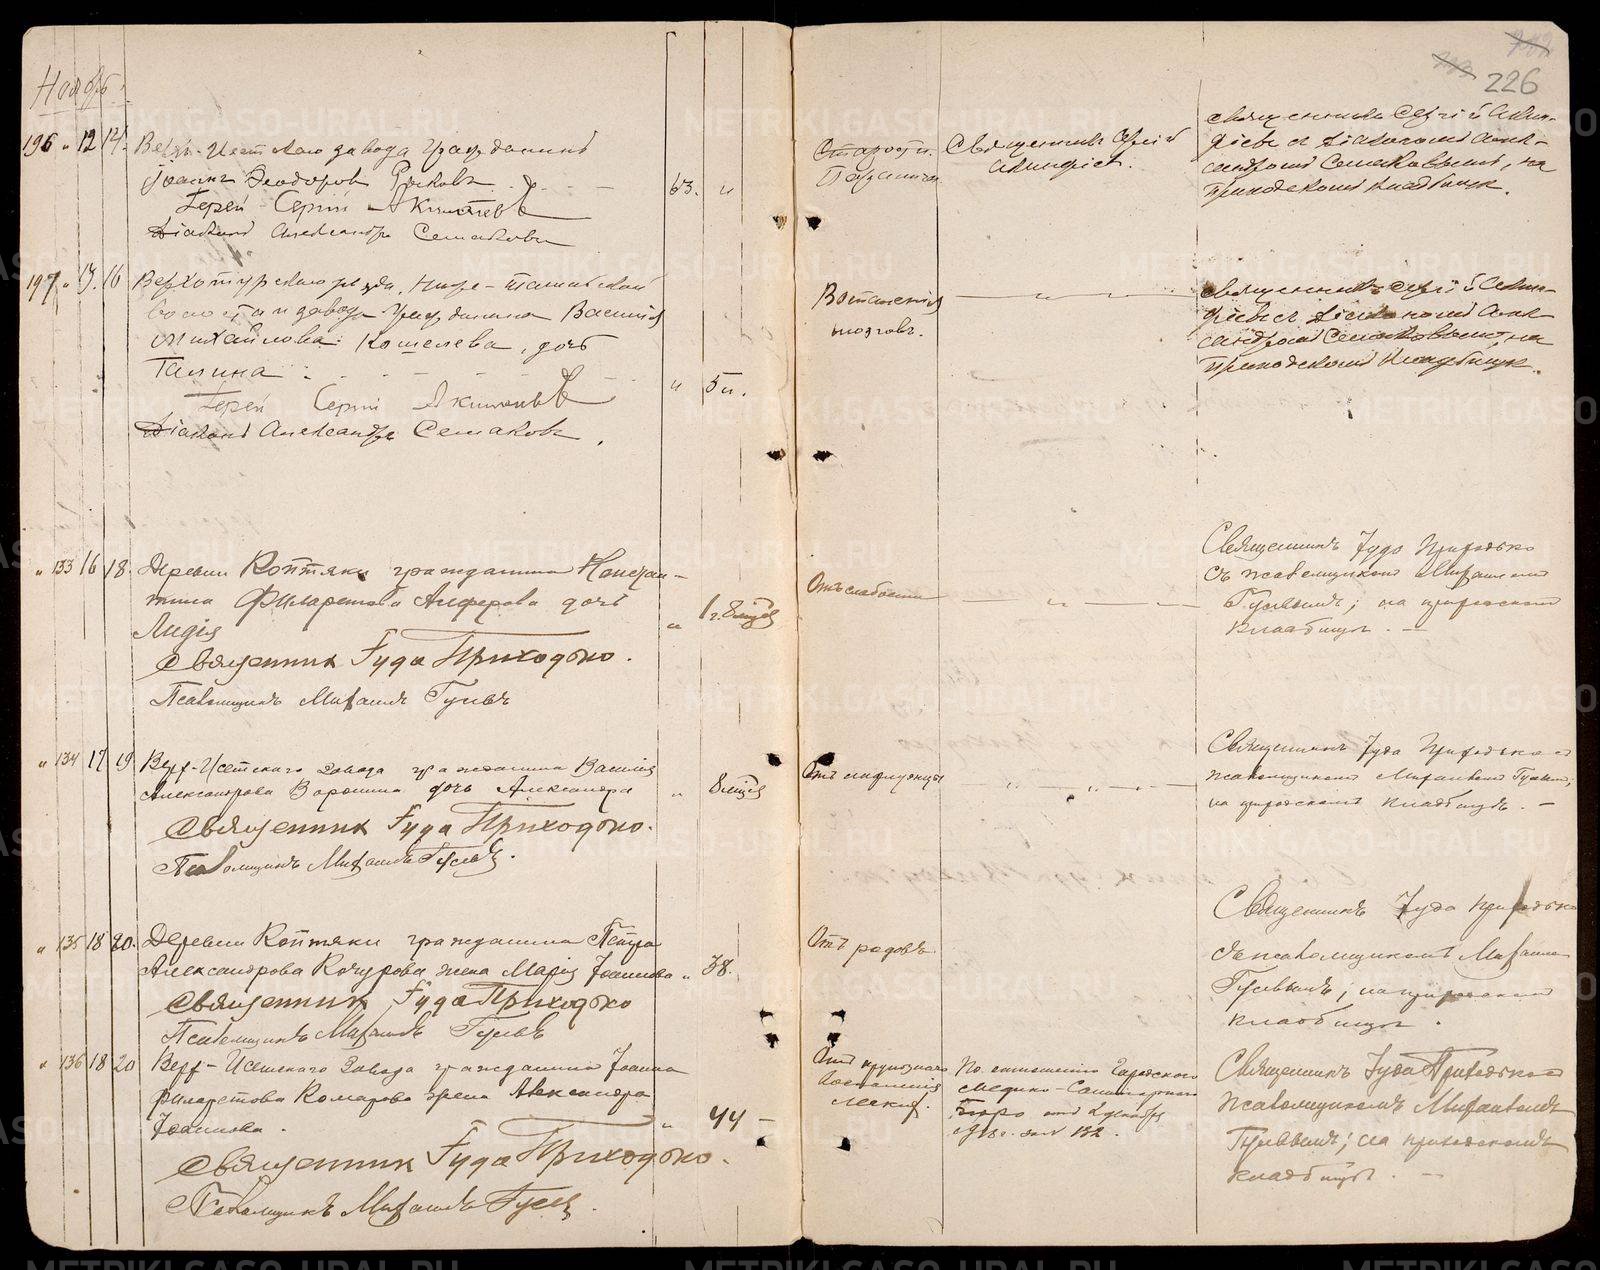 226
Ноябрь
196 " 12 14 Верх-Исетскаго завода гражданинъ
Іоаннъ Ѳеодоровъ
Іерей Сергій
Діаконъ Александръ Семаковъ
63. "
Старости.
Священникъ Сергій
священникъ Сергій
діаконом Алек-
сандром Семаковымъ, на
приходскомъ кладбищѣ.
197 " 13. 16 Верхотурскаго уѣзда,
завода гражданина Василія
Михайлова Кошелева, дочь
Галина
Іерей Сергій
Діаконъ Александръ Семаковъ.
" 5 м.
Воспаленія
мозговъ.
священникъ Сергій
діакономъ Алек-
сандром Семаковымъ, на
приходскомъ кладбищѣ.
" 133 16 18. Деревни Коптяки гражданина Констан-
тина Филаретова Алферова дочь
Лидія
Священник Іуда Приходько.
Псаломщикъ Михаилъ Гусевъ
" 1 г. 8 мцевъ
Отъ слабости
Священникъ Іуда Приходько
съ псаломщикомъ Михаиломъ
Гусевымъ; на приходскомъ
кладбищѣ. —
" 134 17 19 Верх-Исетскаго завода гражданина Василія
Александрова Воронина дочь Александра
Священник Іуда Приходько.
Псаломщикъ Михаилъ Гусевъ.
" 8 мцевъ
Отъ инфлуэнцы
Священникъ Іуда Приходько с
псаломщикомъ Михаиломъ Гусевым;
на приходскомъ кладбищѣ. —
" 135 18 20. Деревни Коптяки гражданина Петра
Александрова Кочурова жена Марія Іоаннова
Священник Іуда Приходько
Псаломщикъ Михаилъ Гусевъ
" 38.
Отъ родовъ
Священникъ Іуда Приходько
съ псаломщикомъ Михаиломъ
Гусевымъ; на приходскомъ
кладбищѣ.
" 136 18 20 Верх-Исетскаго завода гражданина Іоанна
Филаретова Комарова Александра
Іоаннова.
Священник Іуда Приходько.
Псаломщикъ Михаилъ Гусевъ.
" 44 —
Отъ крупознаго
воспаленія
легких.
По отношению Городского
Медико-Санитарного
Бюро от
за № 132.
Священникъ Іуда Приходько с
псаломщикомъ Михаиломъ
Гусевымъ; на приходскомъ
кладбищѣ. —
METRIKI.GASO-URAL.RU